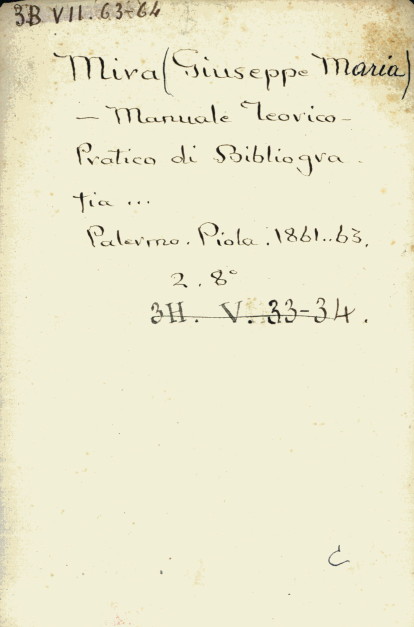 3B VII. 63-64
Mira (Giuseppe Maria)
— Manuale Teorico-
Pratico di Bibliogra-
fia ...
Palermo. Piola. 1861..63.
2. 8°
3H. V. 33-34.
C